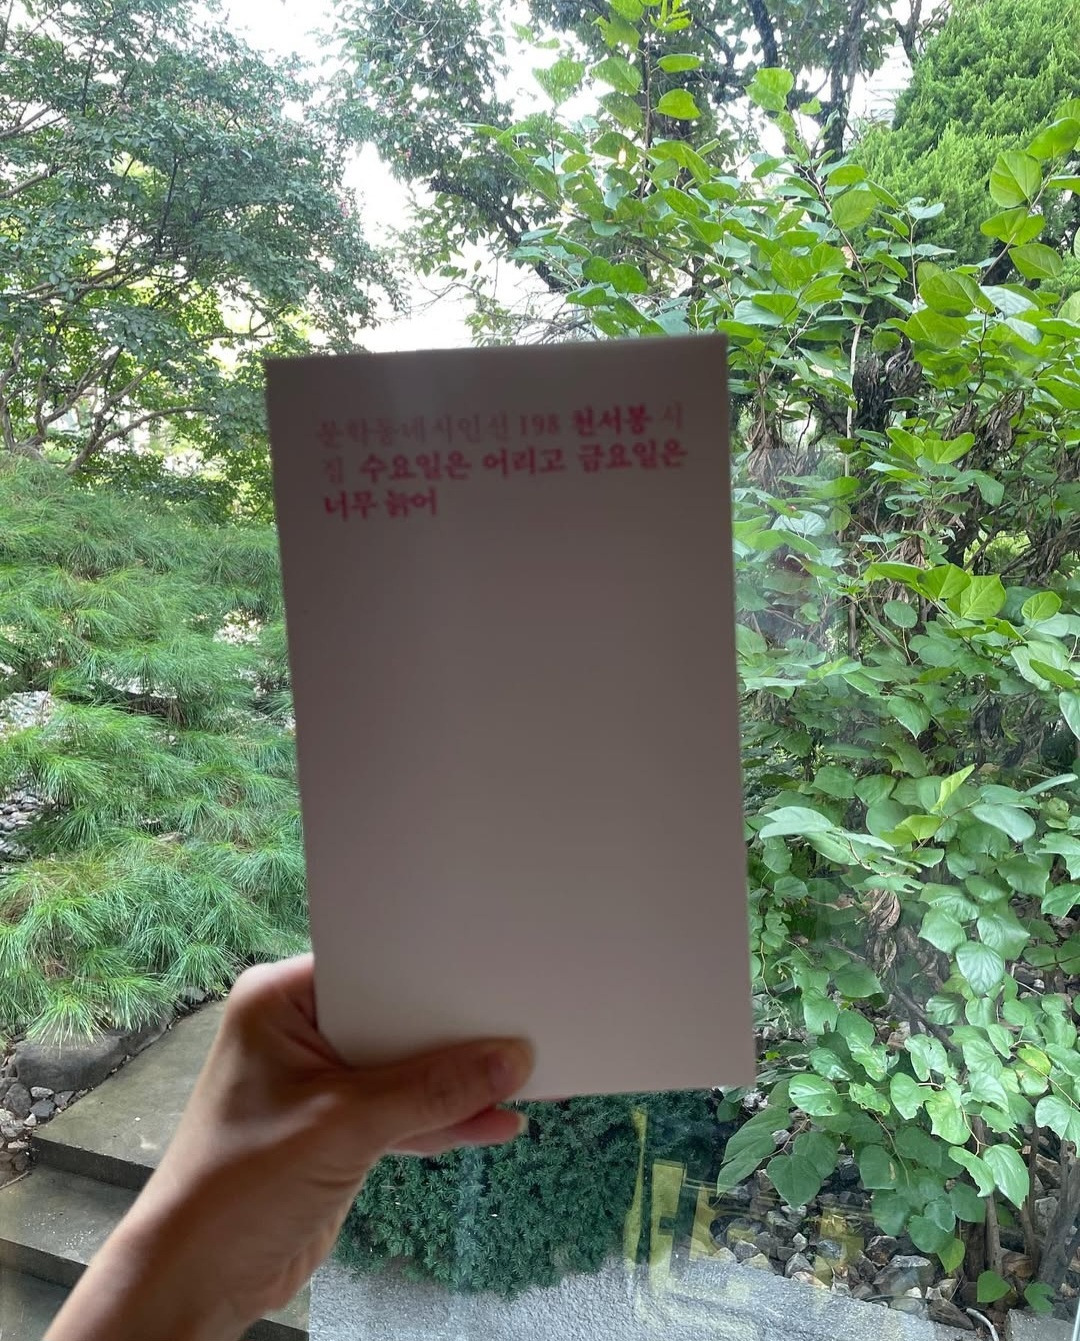 문학동네시인선 198 천서봉 시
집 수요일은 어리고 금요일은
너무 늙어